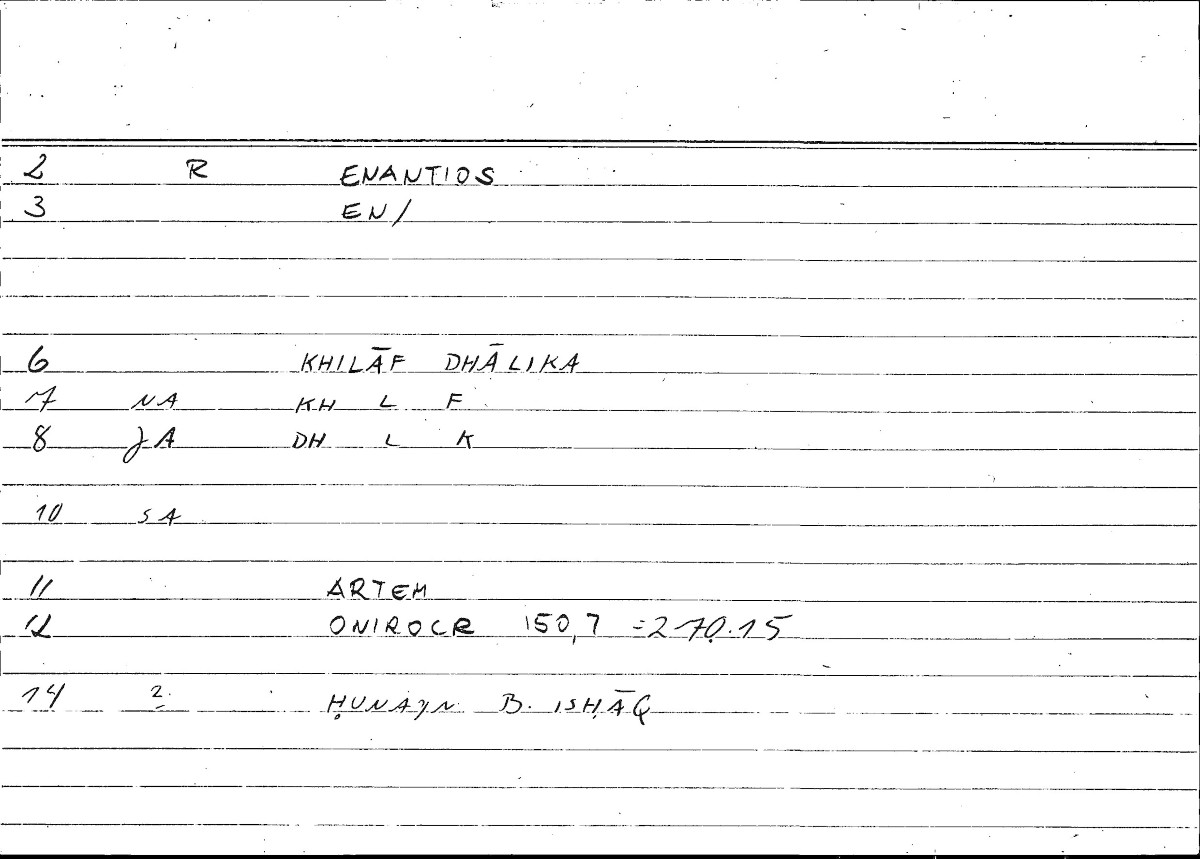 2 R ENANTIOS
3 EN/
6 KHILĀF DHĀLIKA
7 NA KH L F
8 JA DH L K
10 SA
11 ARTEM
12 ONIROCR 150,7 =270.15
14 2. ḤUNAYN B. ISḤĀQ